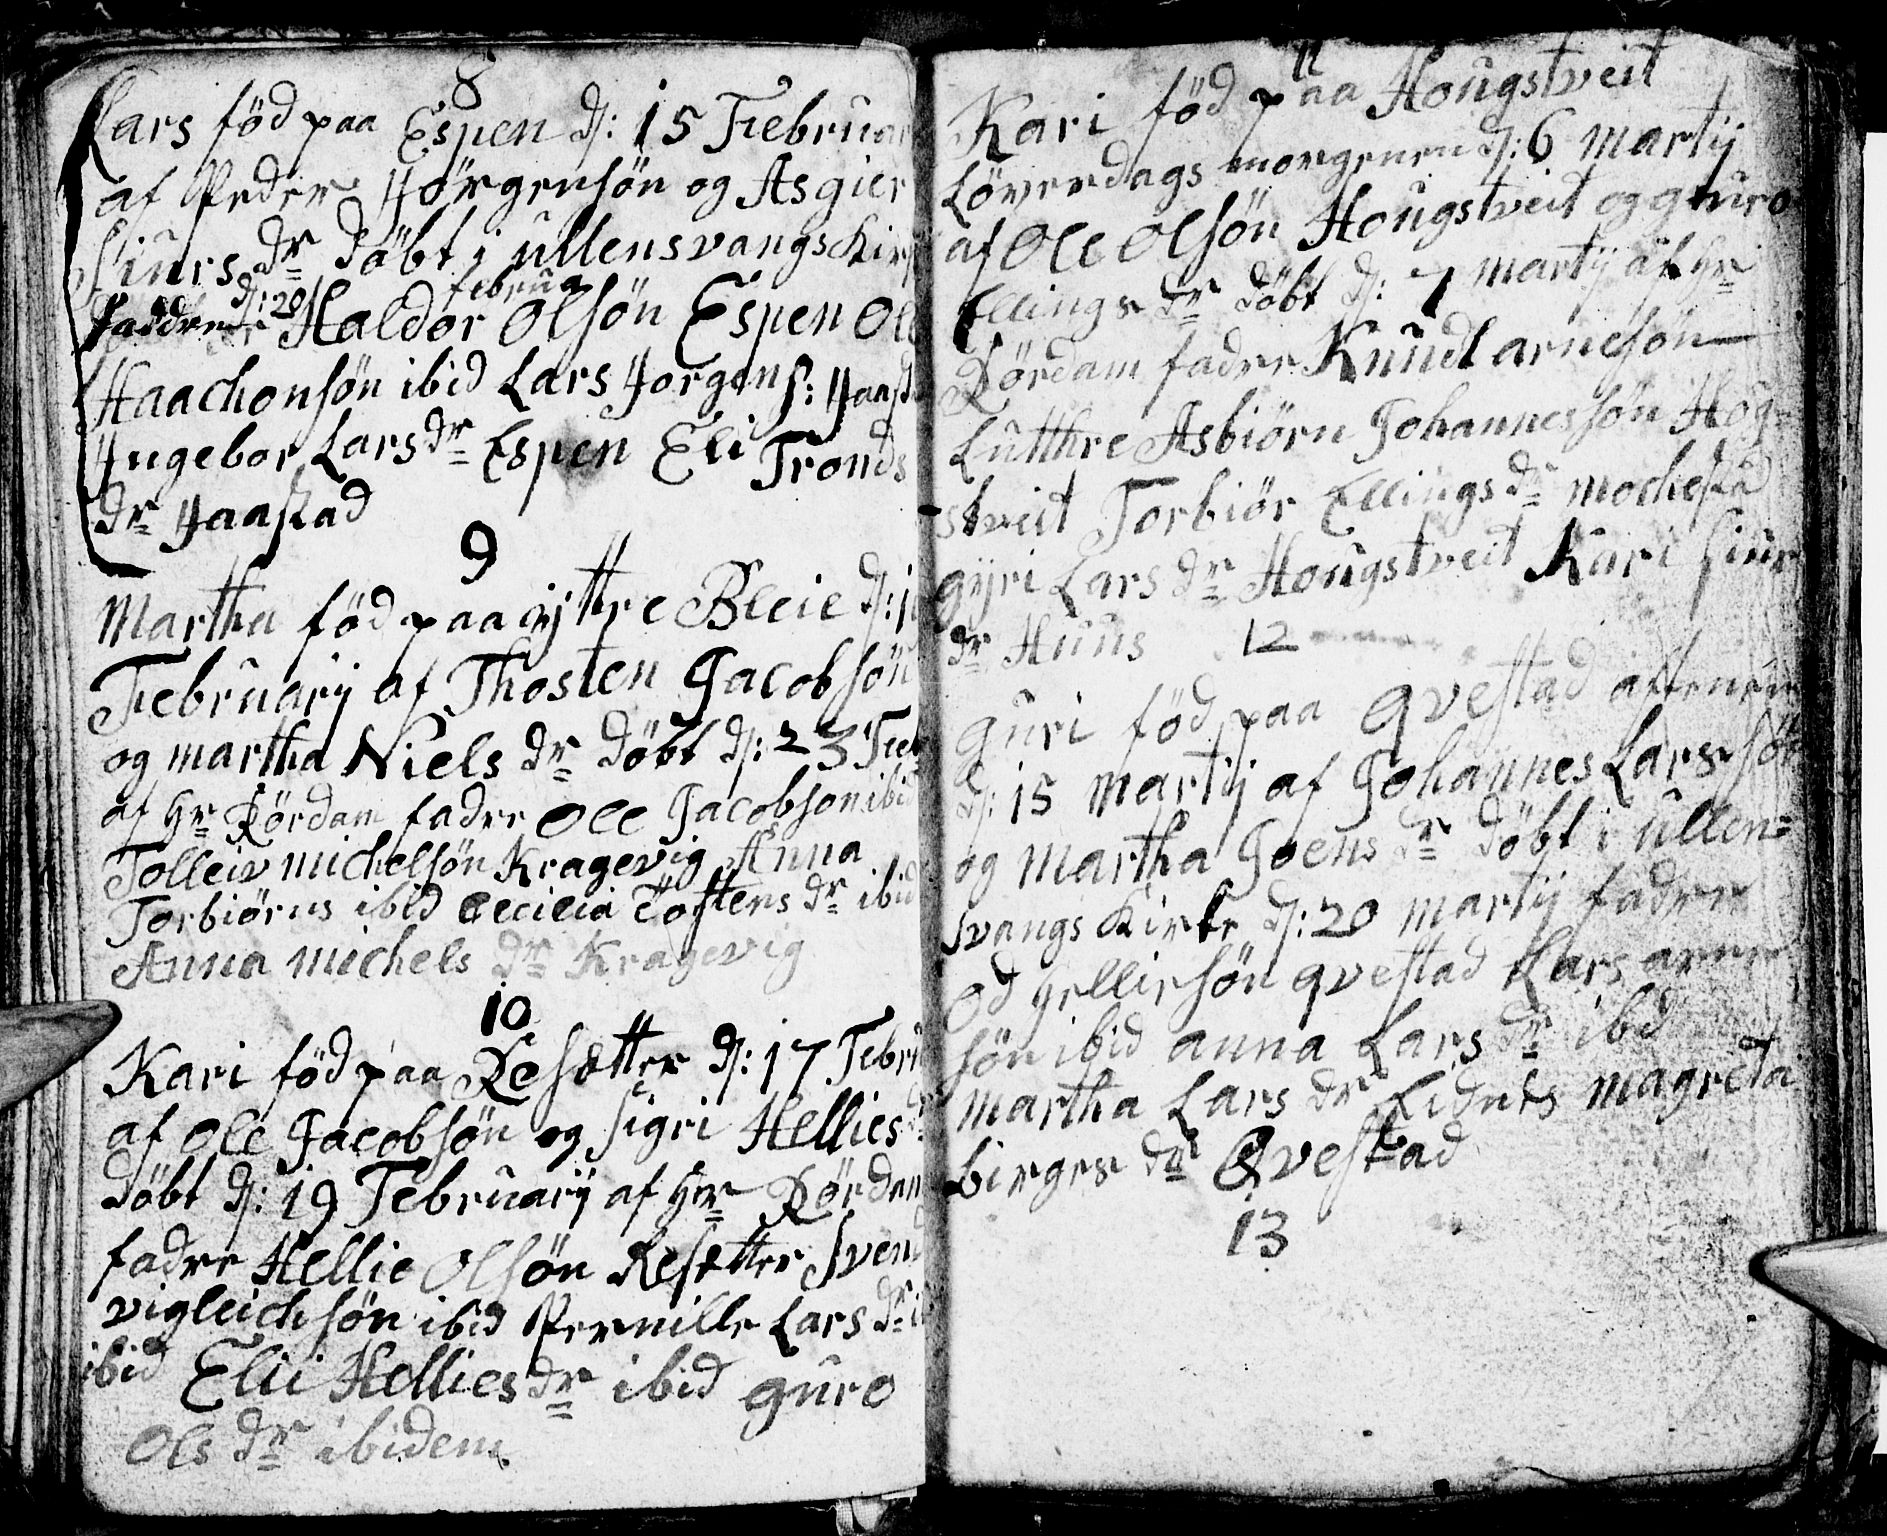 8
Lars föd paa Espen d: 15 Februar
af Peder Hörgensön og Asgier
Siurs dr döbt i ullensvangs Kir
d: 20 februa
faddre Haldor Olsön Espen Ole
Haachonsön ibid Lars Jorgens: Haast
Ingebor Lars dr Espen Eli Tronds
dr Haastad
9
Martha föd paa yttre Bleie d:
Februarij af Thosten Jacobsön
og martha Niels dr döbt d: 23 Feb
af Hr Rördam fadre Ole Jacobson ibid
Tolleiv michelsön Kragevig Anna
Torbiörns ibid Cecilia Tostens dr ibid
Anna michels dr Kragevig
10
Kari föd paa Resetter d: 17 Febru
af Ole Jacobsön og Sigri Hellies dr
döbt d: 19 Februarij af Hr Rördam
fadre Hellie Olsön Resetter Svend
vigleichsön ibid Pernille Lars dr
ibid Elii Hellies dr ibid guro
Ols dr ibidem
11
Kari föd paa Hougstveit
Löverdags morgenen d: 6 martij
af Ole Olsön Hougstveit og guro
Ellings dr döbt d: 7 martij af Hr
Rördam fadre Knudt arnesön
Lutthre Asbiörn Johannessön Hog-
stveit Torbiör Ellings dr mochestad
gyri Lars dr Hougstveit Kari Siur
dr Huus
12
guri föd paa qvestad aftenen
d: 15 martij af Johannes Lars sön
og martha Joens dr döbt i ullen=
svangs Kirke d: 20 martij fadre
Od Helliesön qvestad Lars arne
sön ibid anna Lars dr ibid
martha Lars dr Eidnes magreta
birges dr Qvestad
13